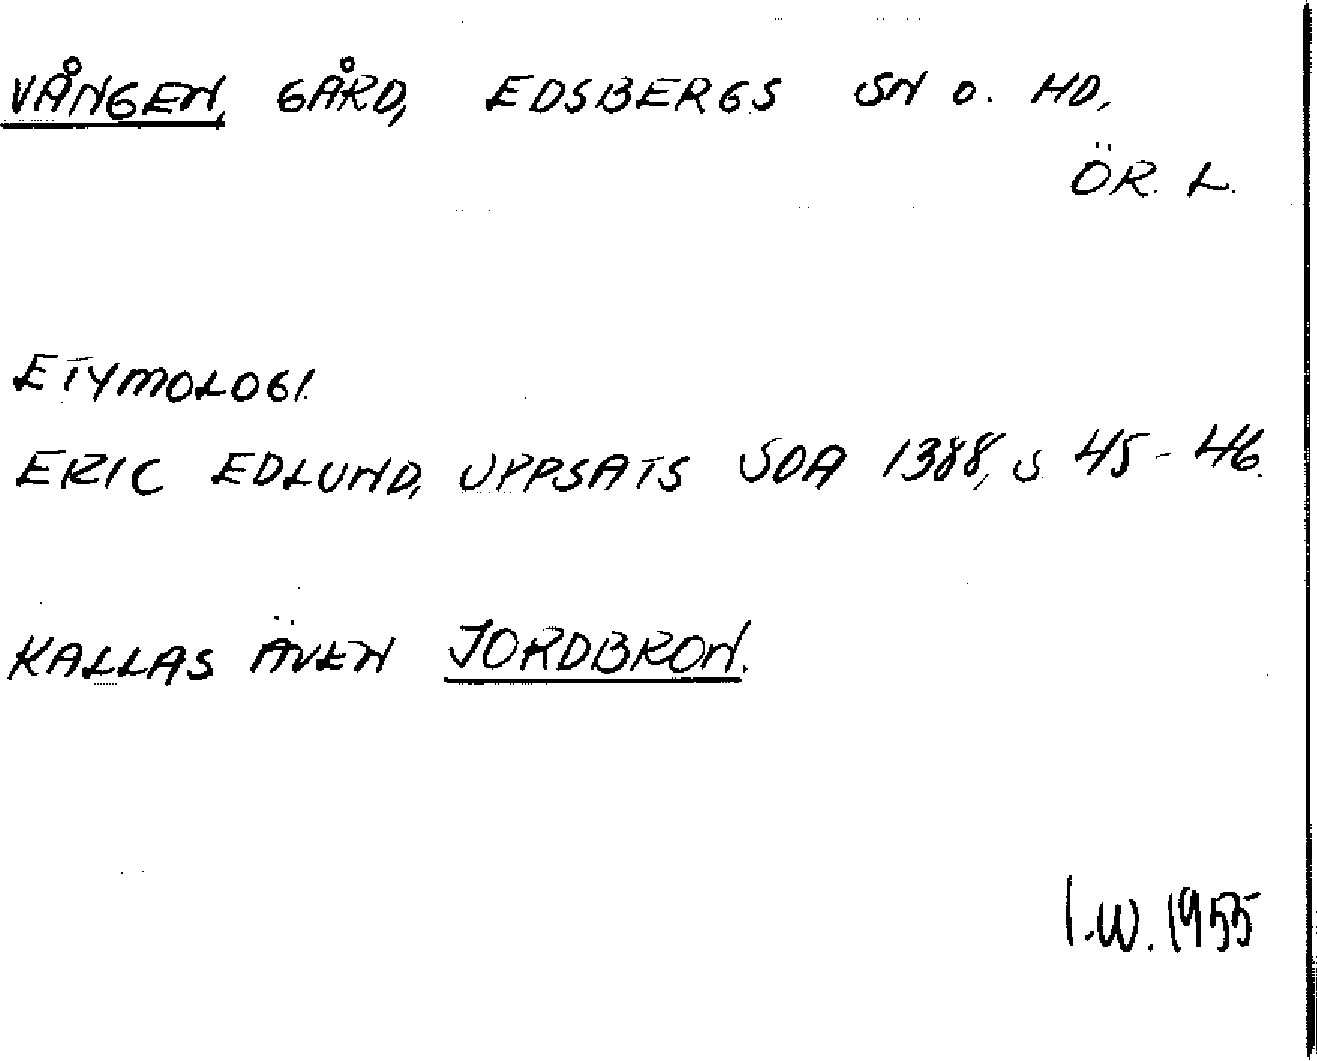 VÅNGEN, GÅRD, EDSBERGS SN O. HD,
ÖR. L.
ETYMOLOGI.
ERIC EDLUND, UPPSATS SOA 1388, S 45-46.
KALLAS ÄVEN JORDBRON.
I.W. 1955